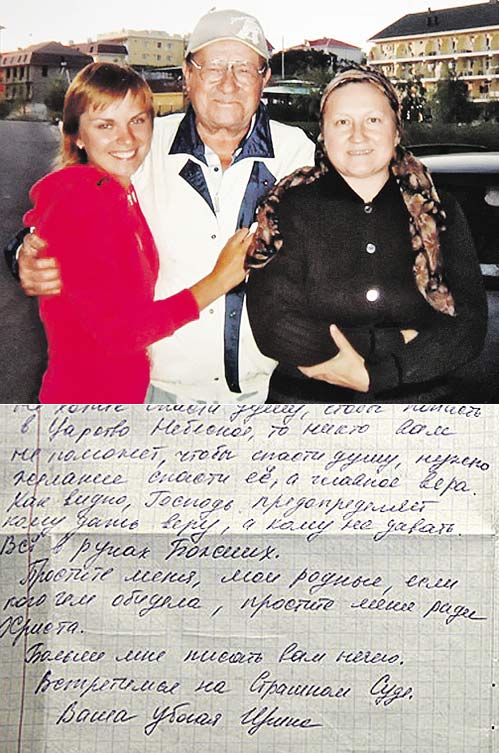 не хотите спасти душу, чтобы попасть
в Царство Небесное, то никто вам
не поможет, чтобы спасти душу, нужно
желание спасти её, а главное вера.
Как видно, Господь предопределяет
кому дать веру, а кому не давать.
Всё в руках Божиих.
Простите меня, мои родные, если
кого чем обидела, простите меня ради
Христа.
Больше мне писать вам нечего.
Встретимся на Страшном Суде.
Ваша убогая Ирина